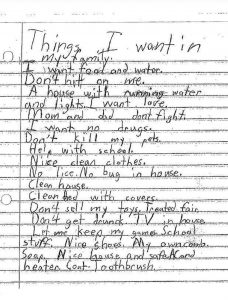 Things I want in
my family.
I want food and water.
Don't hit on me.
A house with running water
and lights. I want love.
Mom and did dont fight.
I want no drugs.
Don't kill my pets.
Help with school.
Nice clean clothes.
No lice. No bug in house.
Clean house.
Clean bed with covers.
Don't sell my toys. Treated fair.
Don't get drunck. TV in house
Let me keep my games School
stuff. Nice shoes. My own comb.
Soap. Nice house and safe AC and
heater. Coat. Toothbrush.